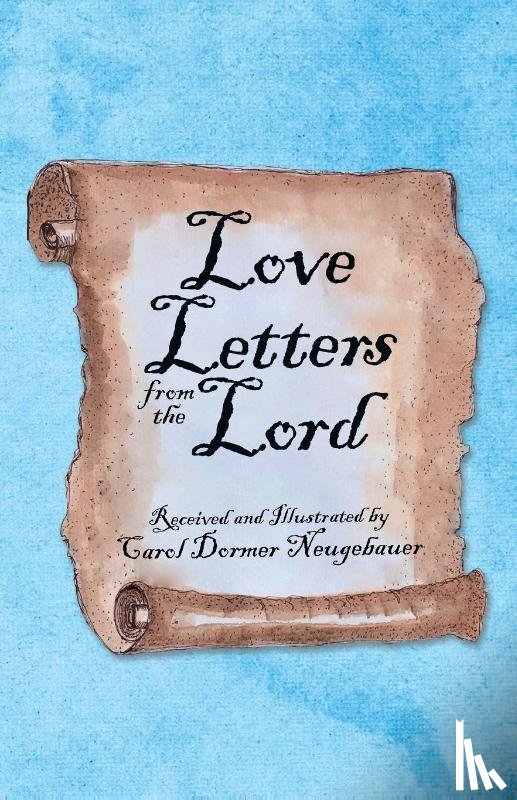 Love
Letters
from the Lord
Received and Illustrated by
Carol Dormer Neugebauer